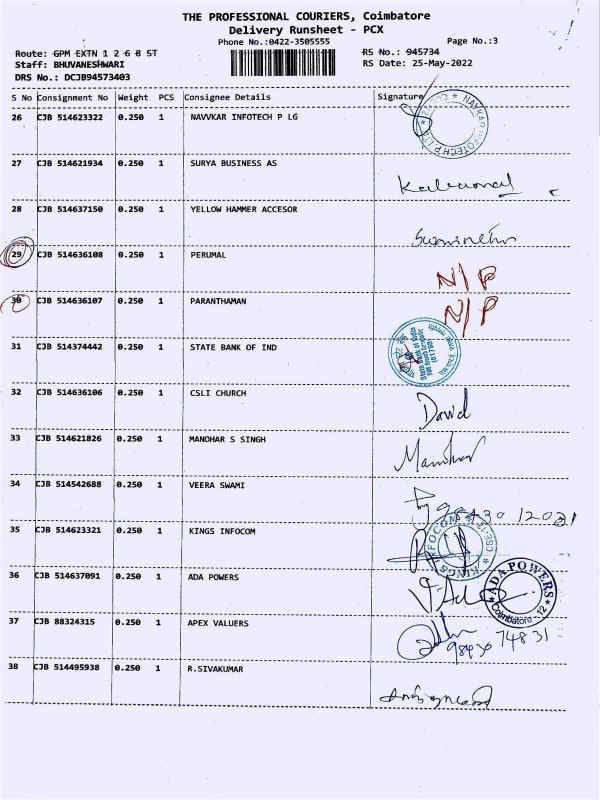 THE PROFESSIONAL COURIERS, Coimbatore
Delivery Runsheet - PCX
Phone No.:0422-3505555 Page No.:3
Route: GPM EXTN 1 2 6 8 ST RS No.: 945734
Staff: BHUVANESHWARI RS Date: 25-May-2022
DRS No.: DCJB94573403
S No Consignment No Weight PCS Consignee Details Signature
26 CJB 514623322 0.250 1 NAVVKAR INFOTECH P LG
27 CJB 514621934 0.250 1 SURYA BUSINESS AS
28 CJB 514637150 0.250 1 YELLOW HAMMER ACCESOR
29 CJB 514636108 0.250 1 PERUMAL N/P
30 CJB 514636107 0.250 1 PARANTHAMAN N/P
31 CJB 514374442 0.250 1 STATE BANK OF IND
32 CJB 514636106 0.250 1 CSLI CHURCH David
33 CJB 514621826 0.250 1 MANOHAR S SINGH Manohar
34 CJB 514542688 0.250 1 VEERA SWAMI
35 CJB 514623321 0.250 1 KINGS INFOCOM
36 CJB 514637091 0.250 1 ADA POWERS ADA POWERS Coimbatore - 12
37 CJB 88324315 0.250 1 APEX VALUERS 98430 74831
38 CJB 514495938 0.250 1 R.SIVAKUMAR